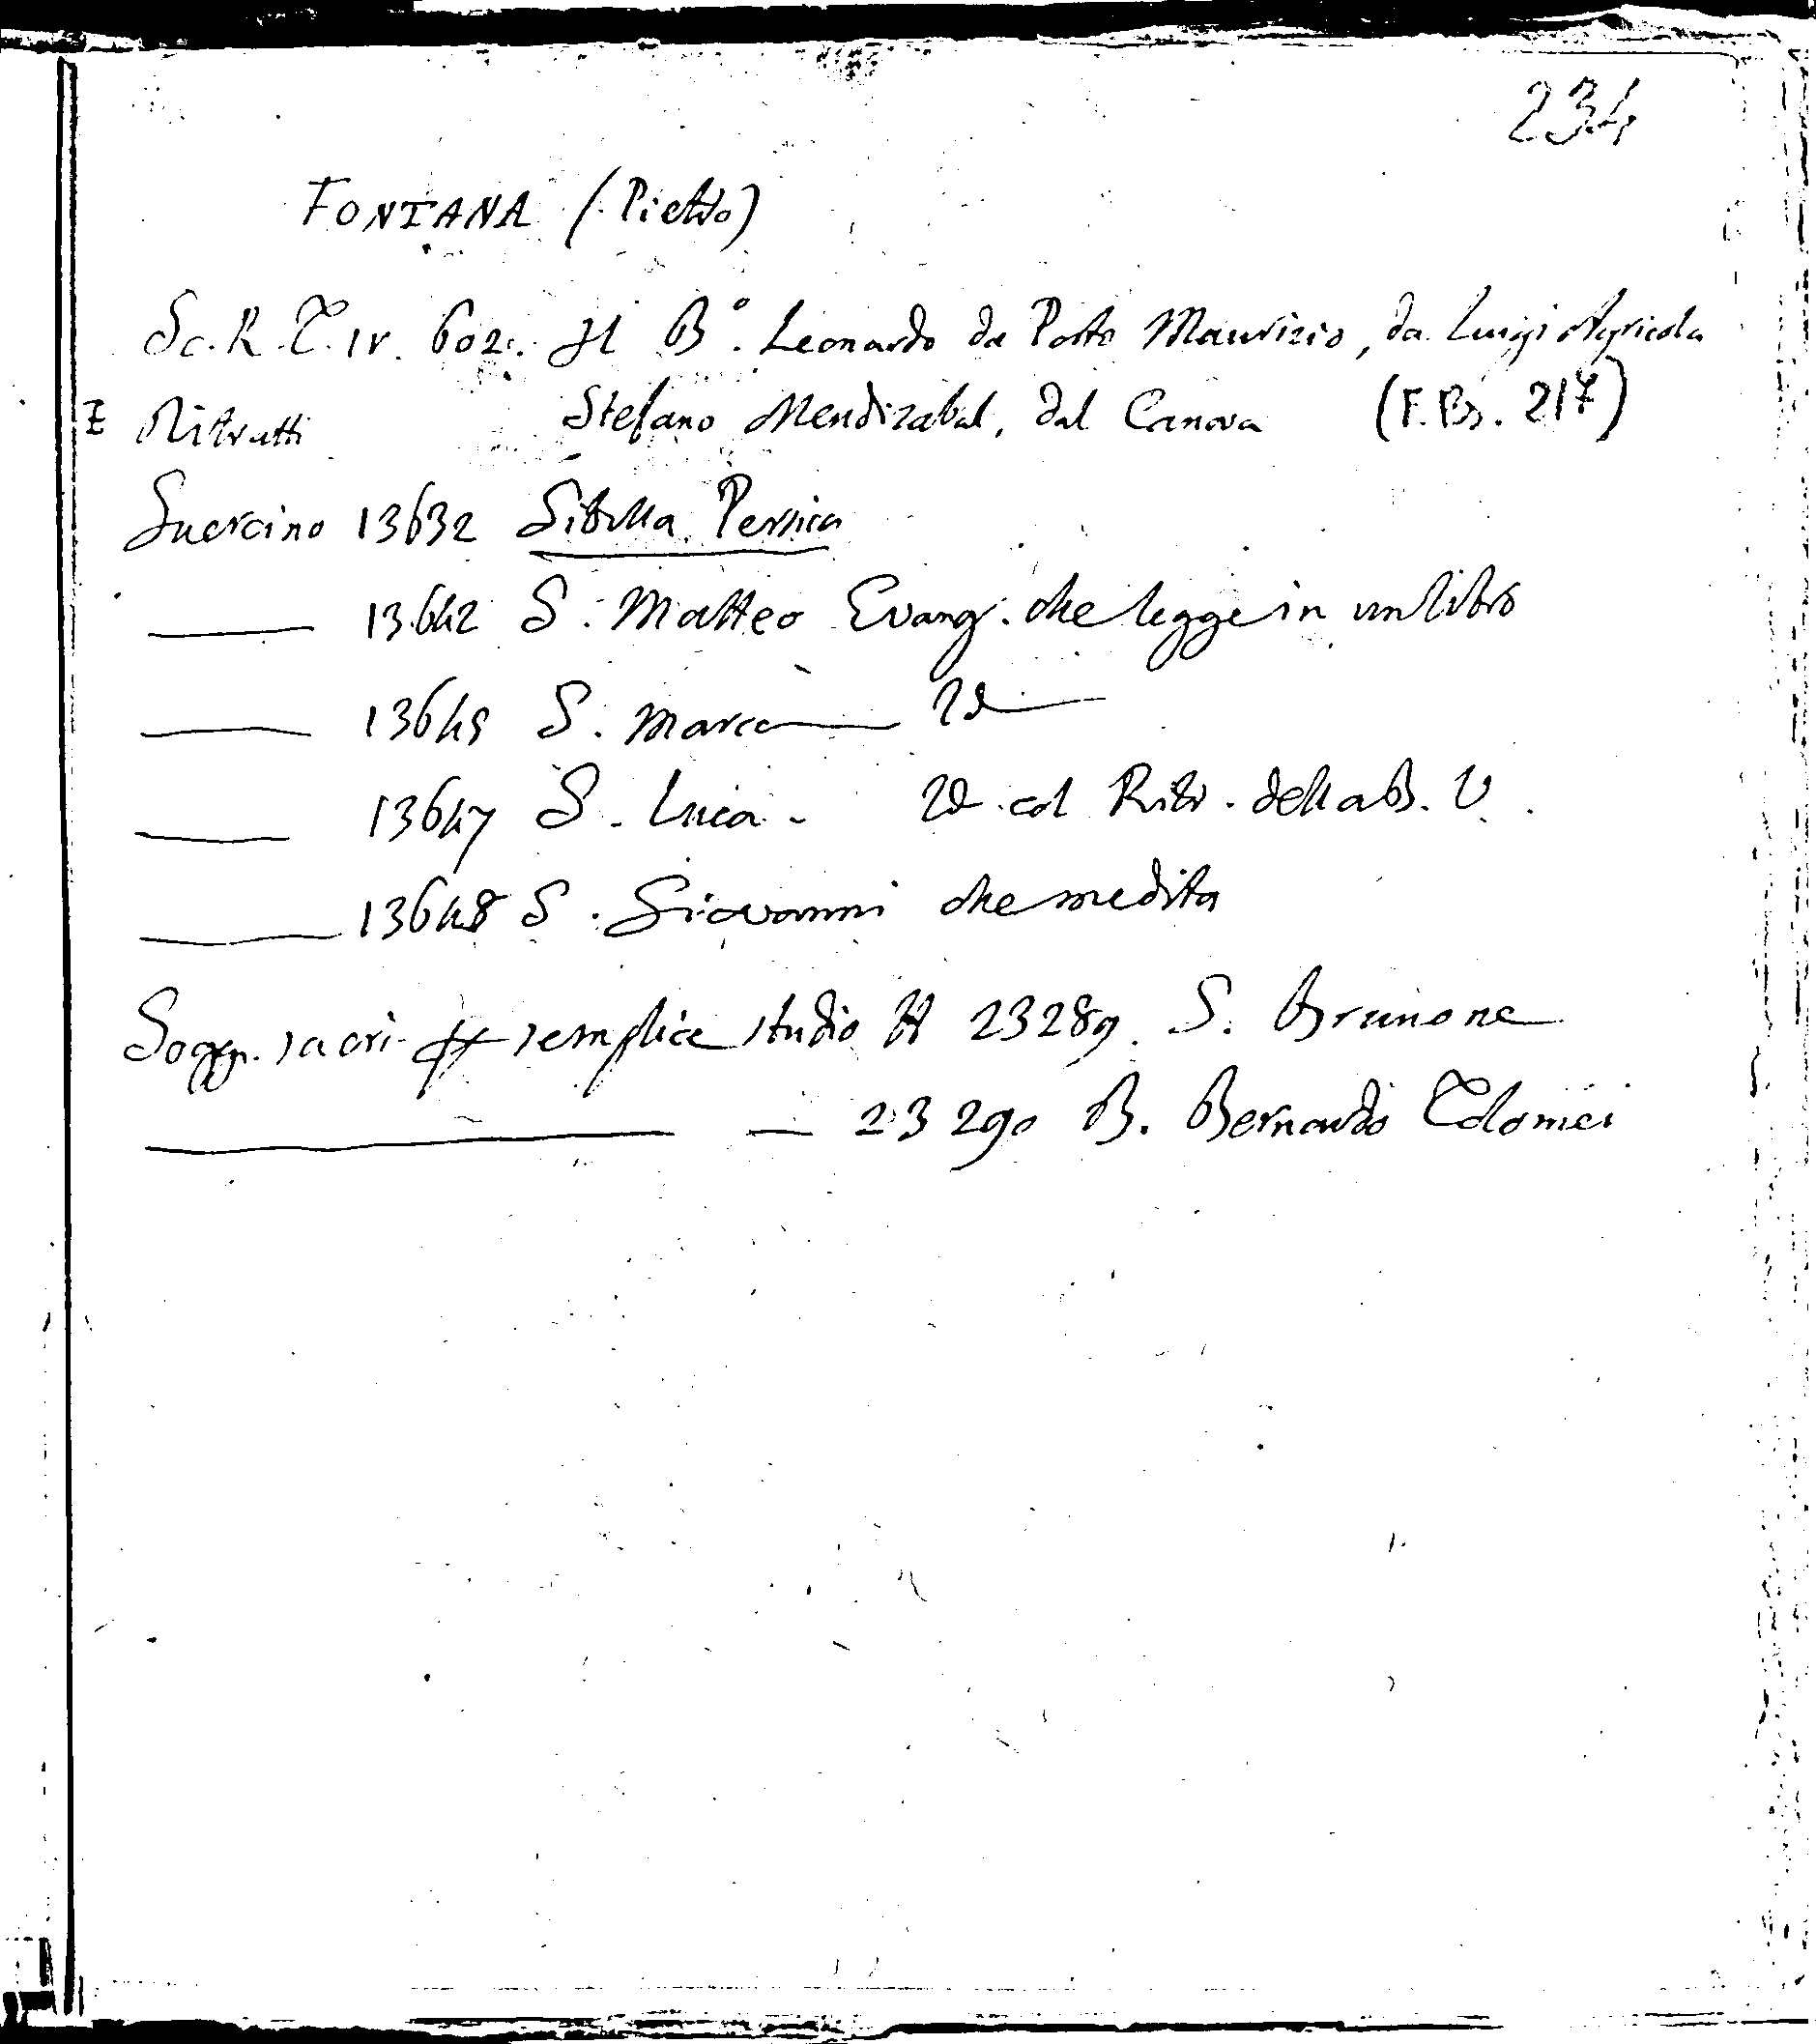 234
FONTANA (Pietro)
Sc. R. T. IV. 602. Il B°. Leonardo da Porto Maurizio, da Luigi Agricola
Ritratti Stefano Mendizabal, dal Canova (F. Bs. 217)
Guercino 13632 Sibilla Persica
—— 13642 S. Matteo Evang. che legge in un libro
—— 13645 S. Marco —— Id ——
—— 13647 S. Luca - Id. col Ritr. della B. V.
—— 13648 S. Giovanni che medita
Sogg. sacri semplice studio H 23289. S. Brunone
—— — 23290 B. Bernardo Tolomei